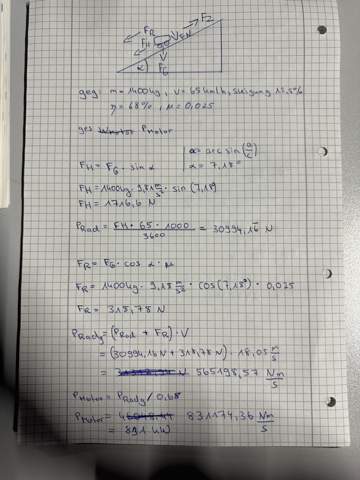 F_R F_Z
F_H V=5N
α F_G
geg: m = 1400kg, v = 65 km/h, Steigung 12,5%
η = 68%, μ = 0,025
ges P Motor
F_H = F_G · sin α
α = arc sin (a/c)
α = 7,18°
F_H = 1400kg · 9,81 m/s² · sin (7,18)
F_H = 1716,6 N
P_Rad = FH · 65 · 1000 / 3600 = 30994,16 N
F_R = F_G · cos α · μ
F_R = 1400kg · 9,18 m/s² · cos (7,18°) · 0,025
F_R = 318,78 N
P_Rady = (P_Rad + F_R) · V
= (30994,16 N + 318,78 N) · 18,05 m/s
= 565198,57 Nm/s
P_Motor = P_Rady / 0,68
P_Motor = 831174,36 Nm/s
= 831 kW